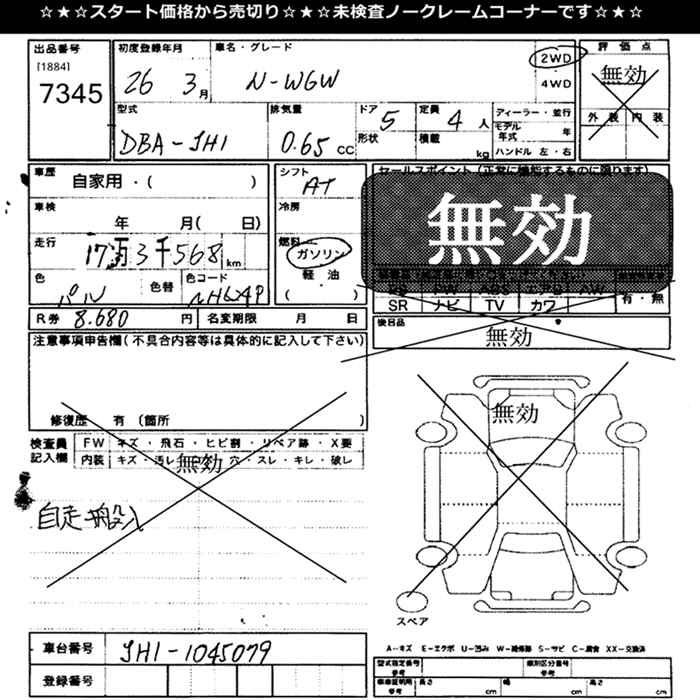 ☆★☆スタート価格から売切り☆★☆未検査ノークレームコーナーです☆★☆
出品番号 初度登録年月 車名・グレード 評価点
[1884]
7345
26 3月 N-WGW 2WD 4WD 無効
外装 内装
型式 排気量 ドア 定員 ディーラー・並行
DBA-JH1 0.65 CC 5 4人
モデル年式 年
形状 積載 kg ハンドル 左・右
車歴 自家用・( ) シフト AT セールスポイント (正常に機能するものに限ります)
車検 年 月( 日) 冷房
無効
走行 17万3千568km 燃料 ガソリン
軽油
( )
色 パル 色替 色コード NH624P
PW ABS エアB AW
SR ナビ TV カワ 有・無
R券 8.680円 名変期限 月 日 後日品
無効
注意事項申告欄(不具合内容等は具体的に記入して下さい)
修復歴 有 (箇所 )
無効
検査員記入欄 FW キズ・飛石・ヒビ割・リペア跡・X要
内装 キズ・汚レ・穴・スレ・キレ・破レ
無効
自走搬入
スペア
A-キズ E-エクボ U-凹み W-補修跡 S-サビ C-腐食 XX-交換済
車台番号 JH1-1045079
型式指定番号 類別区分番号
参考 参考
登録番号
長さ cm 幅 cm 高さ cm